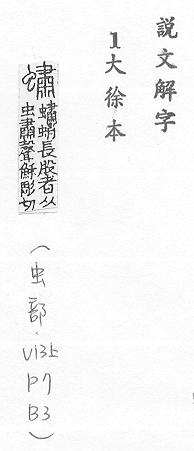 説文解字
1大徐本
蠨蠨蛸長股者从
虫肅聲穌彫切
(虫部·V13上
P7
B3)